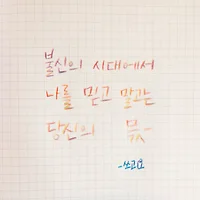 불신의 시대에서
나를 믿고 말고는
당신의 몫-
-쓰고모